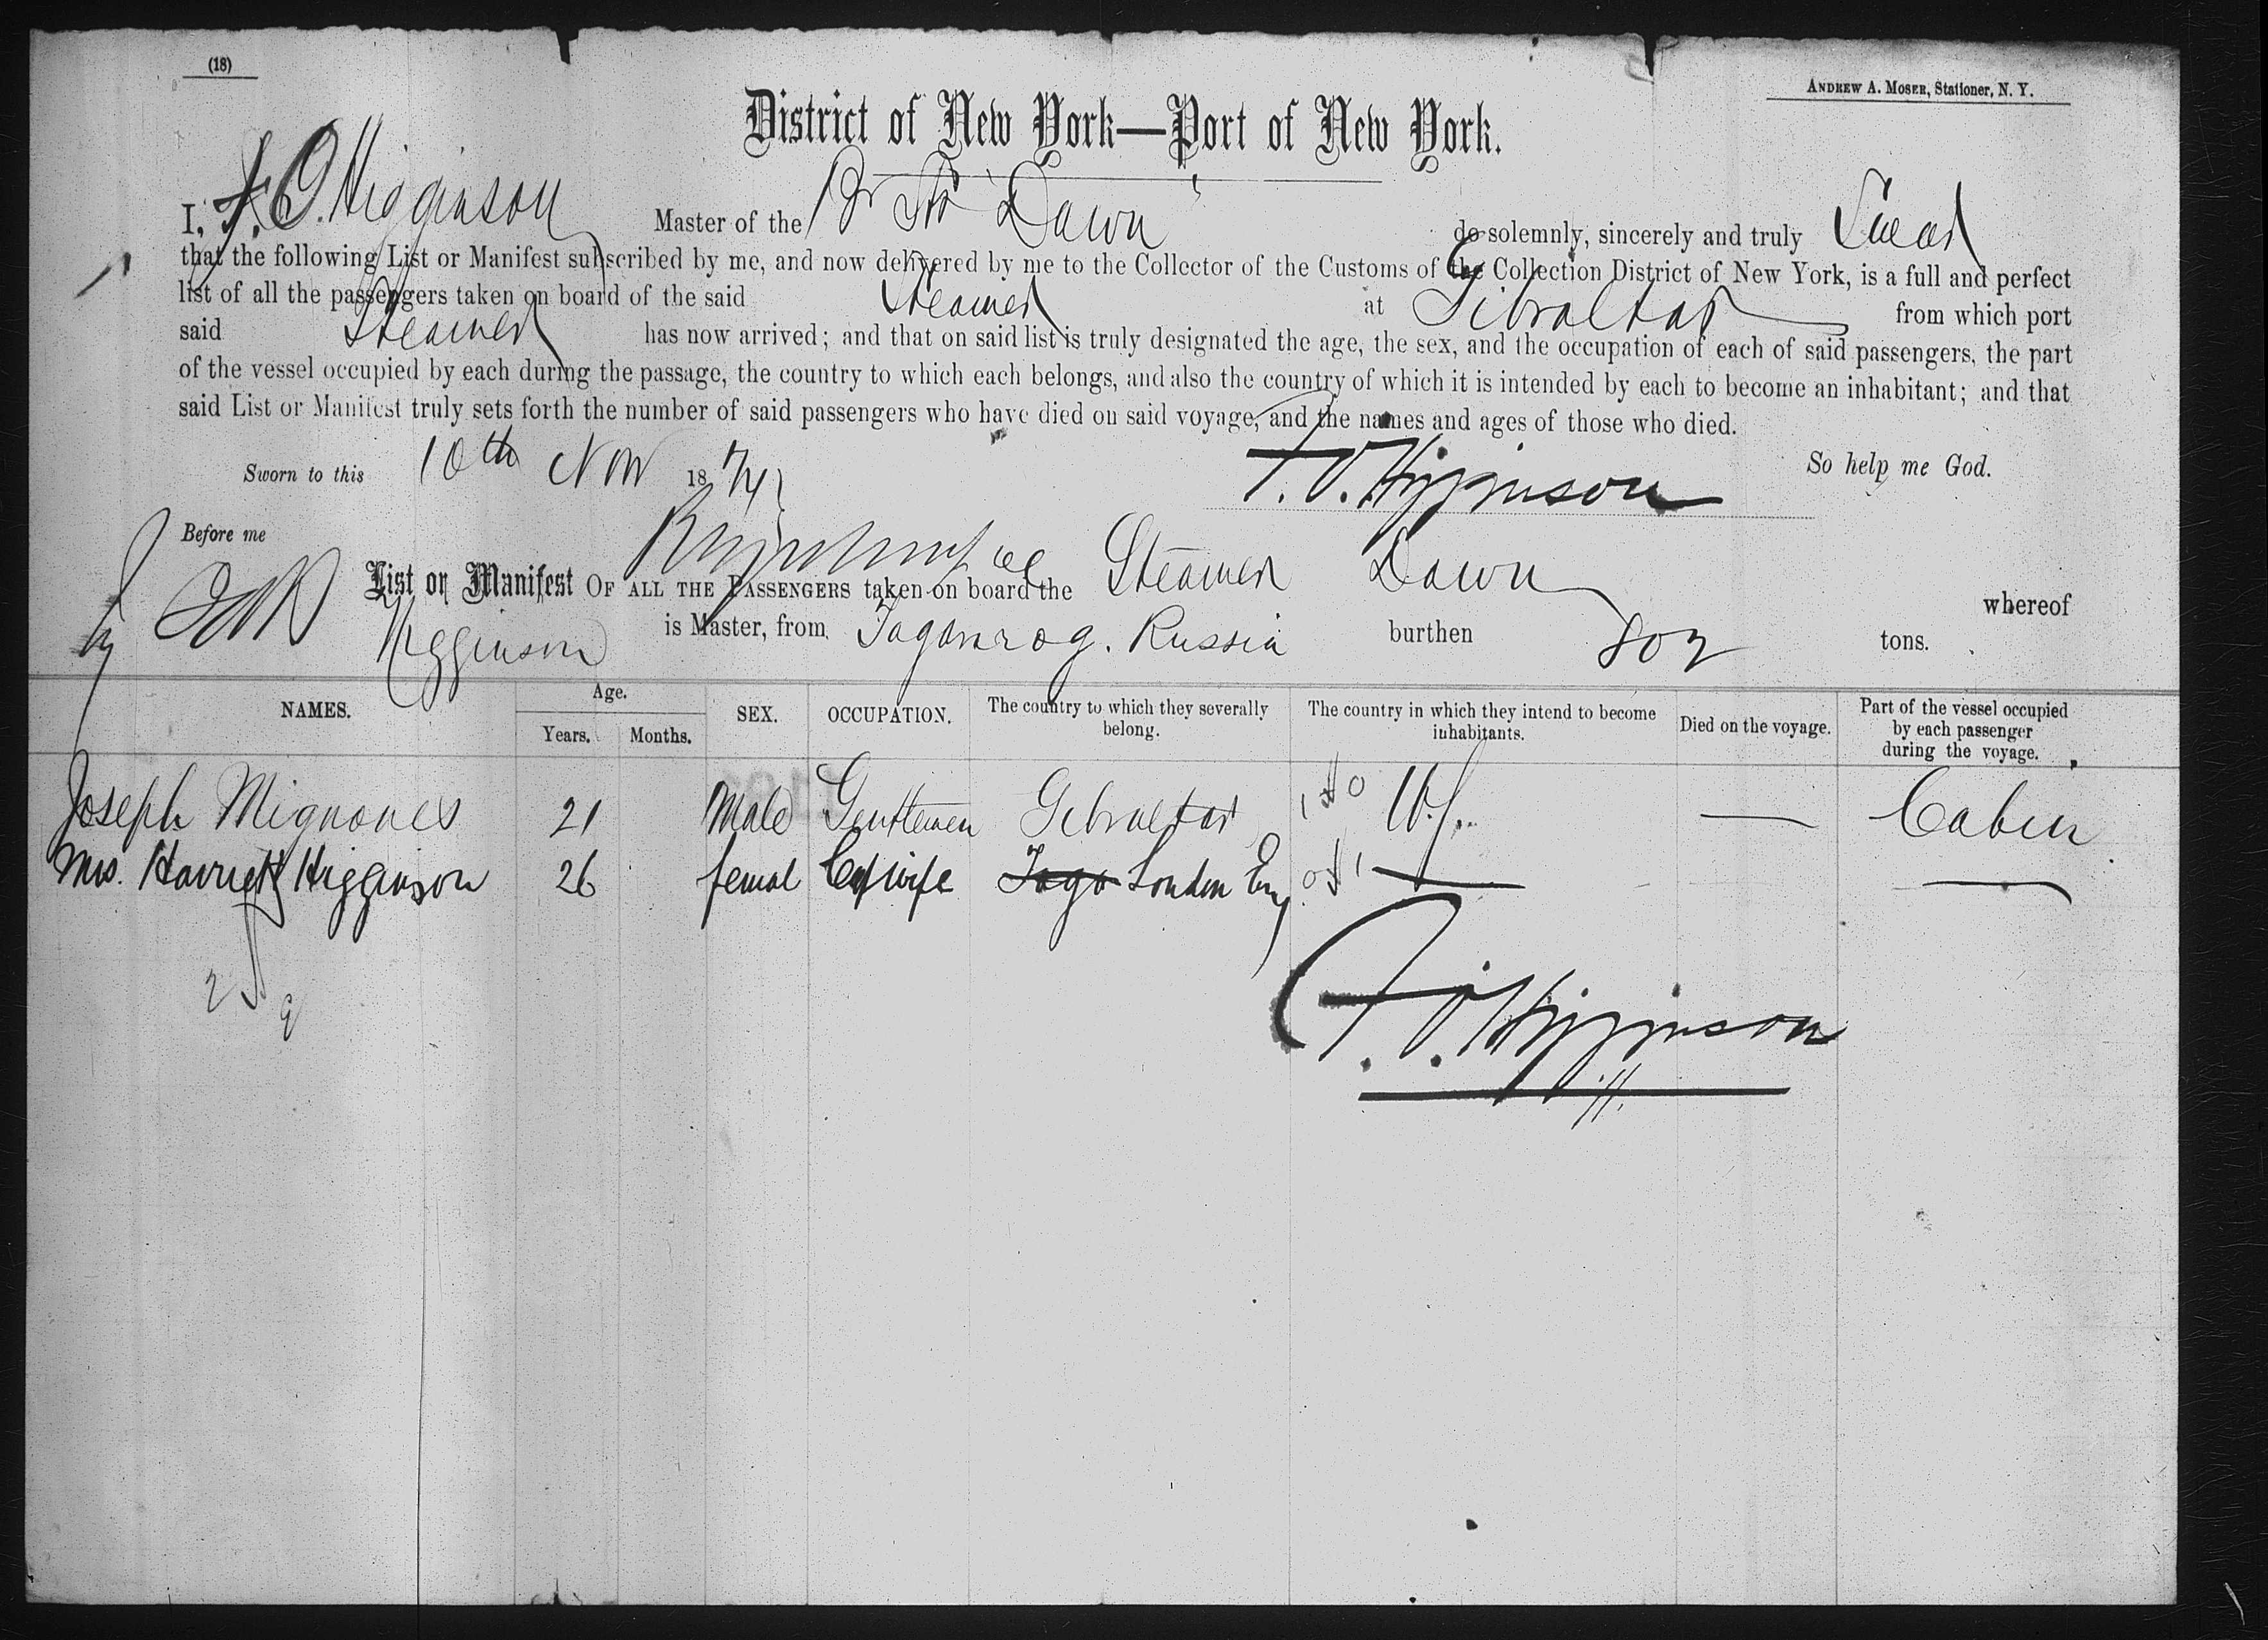 (18)
ANDREW A. MOSER, Stationer, N. Y.
District of New York—Port of New York.
I, F. O. Higginson Master of the Br Str Dawn do solemnly, sincerely and truly Swear
that the following List or Manifest subscribed by me, and now delivered by me to the Collector of the Customs of the Collection District of New York, is a full and perfect
list of all the passengers taken on board of the said Steamer at Gibraltar from which port
said Steamer has now arrived; and that on said list is truly designated the age, the sex, and the occupation of each of said passengers, the part
of the vessel occupied by each during the passage, the country to which each belongs, and also the country of which it is intended by each to become an inhabitant; and that
said List or Manifest truly sets forth the number of said passengers who have died on said voyage, and the names and ages of those who died.
Sworn to this 10th Nov 1874 F. O. Higginson So help me God.
Before me
List or Manifest OF ALL THE PASSENGERS taken on board the Steamer Dawn whereof
Higginson is Master, from Taganrog. Russia burthen 802 tons.
NAMES. Age. Years. Months. SEX. OCCUPATION. The country to which they severally belong. The country in which they intend to become inhabitants. Died on the voyage. Part of the vessel occupied by each passenger during the voyage.
Joseph Mignones 21 Male Gentlemen Gibraltar — Cabin
Mrs. Harriett Higginson 26 female wife Tago London Eng — —
F. O. Higginson